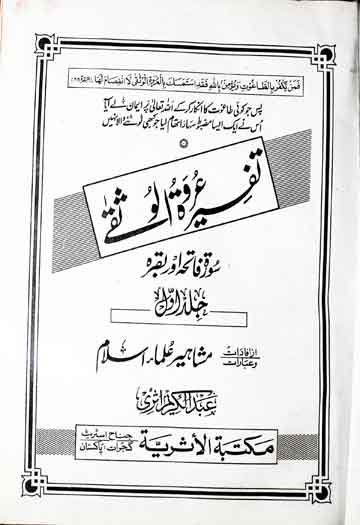 فَمَنْ يَكْفُرْ بِالطَّاغُوْتِ وَيُؤْمِنْ بِاللّٰهِ فَقَدِ اسْتَمْسَكَ بِالْعُرْوَةِ الْوُثْقٰى لَا انْفِصَامَ لَهَا
پس جو کوئی طاغوت کا انکار کر کے اللہ تعالیٰ پر ایمان لے آیا
اُس نے ایک ایسا مضبوط سہارا تھام لیا جو کبھی ٹوٹنے والا نہیں
تفسیر عروۃ الوثقٰے
سورۃ فاتحہ اور بقرہ
جلد اوّل
از افادات
وعبارات
مشاہیر علماء اسلام
عبد الکریم اثری
مكتبة الأثرية
جناح اسٹریٹ
گجرات، پاکستان